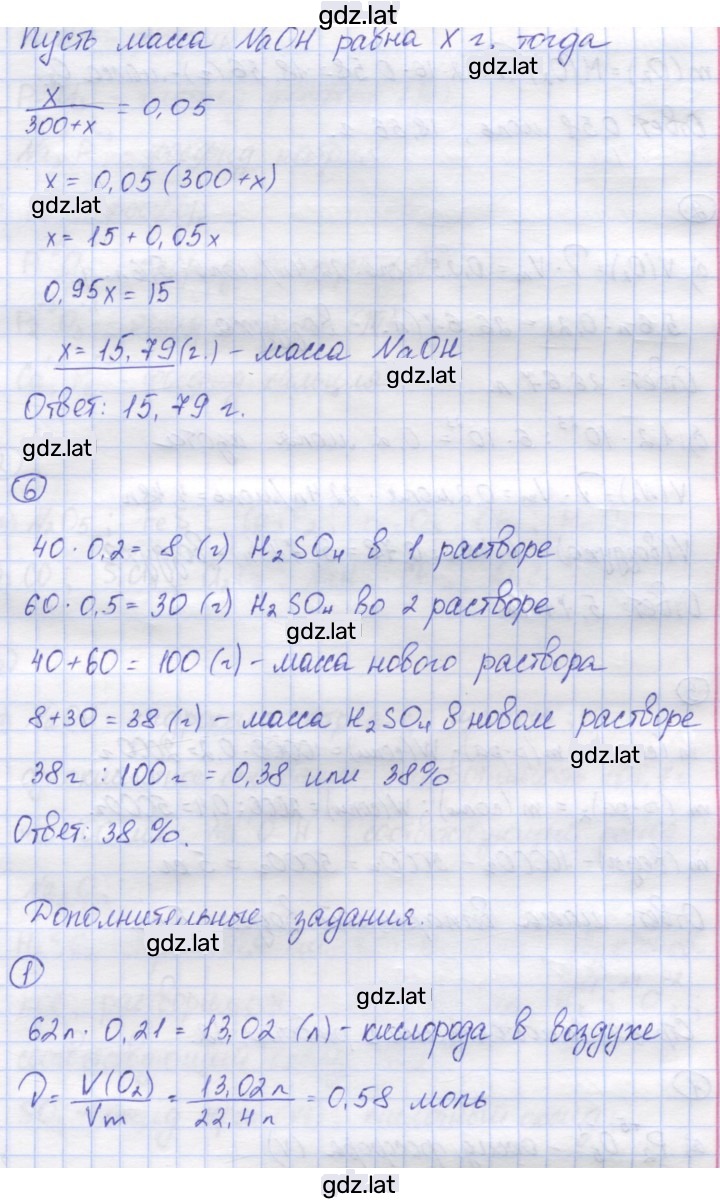 gdz.lat
Пусть масса NaOH равна x г. тогда
gdz.lat
x/300+x = 0,05
x = 0,05 (300+x)
gdz.lat
x = 15 + 0,05x
0,95x = 15
x = 15,79 (г.) – масса NaOH
gdz.lat
Ответ: 15,79 г.
gdz.lat
6
40 · 0,2 = 8 (г) H₂SO₄ в 1 растворе
60 · 0,5 = 30 (г) H₂SO₄ во 2 растворе
gdz.lat
40+60 = 100 (г) – масса нового раствора
8+30 = 38 (г) – масса H₂SO₄ в новом растворе
gdz.lat
38г : 100г = 0,38 или 38%
Ответ: 38 %.
Дополнительные задания.
gdz.lat
1
gdz.lat
62л · 0,21 = 13,02 (л) – кислорода в воздухе
ν = V(O₂)/Vm = 13,02л/22,4л = 0,58 моль
gdz.lat